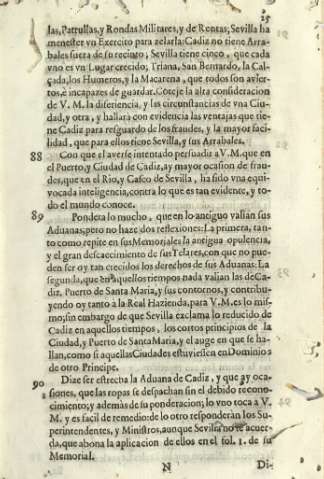 25
las, Patrullas, y Rondas Militares, y de Rentas; Sevilla ha
menester vn Exercito para zelarla: Cadiz no tiene Arra-
bales fuera de su recinto; Sevilla tiene cinco, que cada
vno es vn Lugar crecido; Triana, San Bernardo, la Cal-
çada, los Humeros, y la Macarena, que todos son avier-
tos, è incapaces de guardar. Coteje la alta consideracion
de V. M. la diferiencia, y las circunstancias de vna Ciu-
dad, y otra, y hallarà con evidencia las ventajas que tie-
ne Cadiz para resguardo de los fraudes, y la mayor faci-
lidad, que para ellos tiene Sevilla, y sus Arrabales.
88 Con que el averse intentado persuadir a V. M. que en
el Puerto, y Ciudad de Cadiz, ay mayor ocasion de frau-
des, que en el Rio, y Casco de Sevilla, ha sido vna equi-
vocada inteligencia, contra lo que es tan evidente, y to-
do el mundo conoce.
89 Pondera lo mucho, que en lo antiguo valian sus
Aduanas, pero no haze dos reflexiones: La primera, tan-
to como repite en sus Memoriales la antigua opulencia,
y el gran descaecimiento de sus Telares, con que no pue-
den ser oy tan crecidos los derechos de sus Aduanas: La
segunda, que en aquellos tiempos nada valian las de Ca-
diz, Puerto de Santa Maria, y sus contornos, y contribu-
yendo oy tanto à la Real Hazienda, para V. M. es lo mis-
mo; sin embargo de que Sevilla exclama lo reducido de
Cadiz en aquellos tiempos, los cortos principios de la
Ciudad, y Puerto de Santa Maria, y el auge en que se ha-
llan, como si aquellas Ciudades estuviessen en Dominios
de otro Principe.
90 Dize ser estrecha la Aduana de Cadiz, y que ay oca-
siones, que las ropas se despachan sin el debido recono-
cimiento; y ademàs de su ponderacion; lo vno toca à V.
M. y es facil de remedio: de lo otro responderàn los Su-
perintendentes, y Ministros, aunque Sevilla no se acuer-
da, que abona la aplicacion de ellos en el fol. 1. de su
Memorial.
N Di-